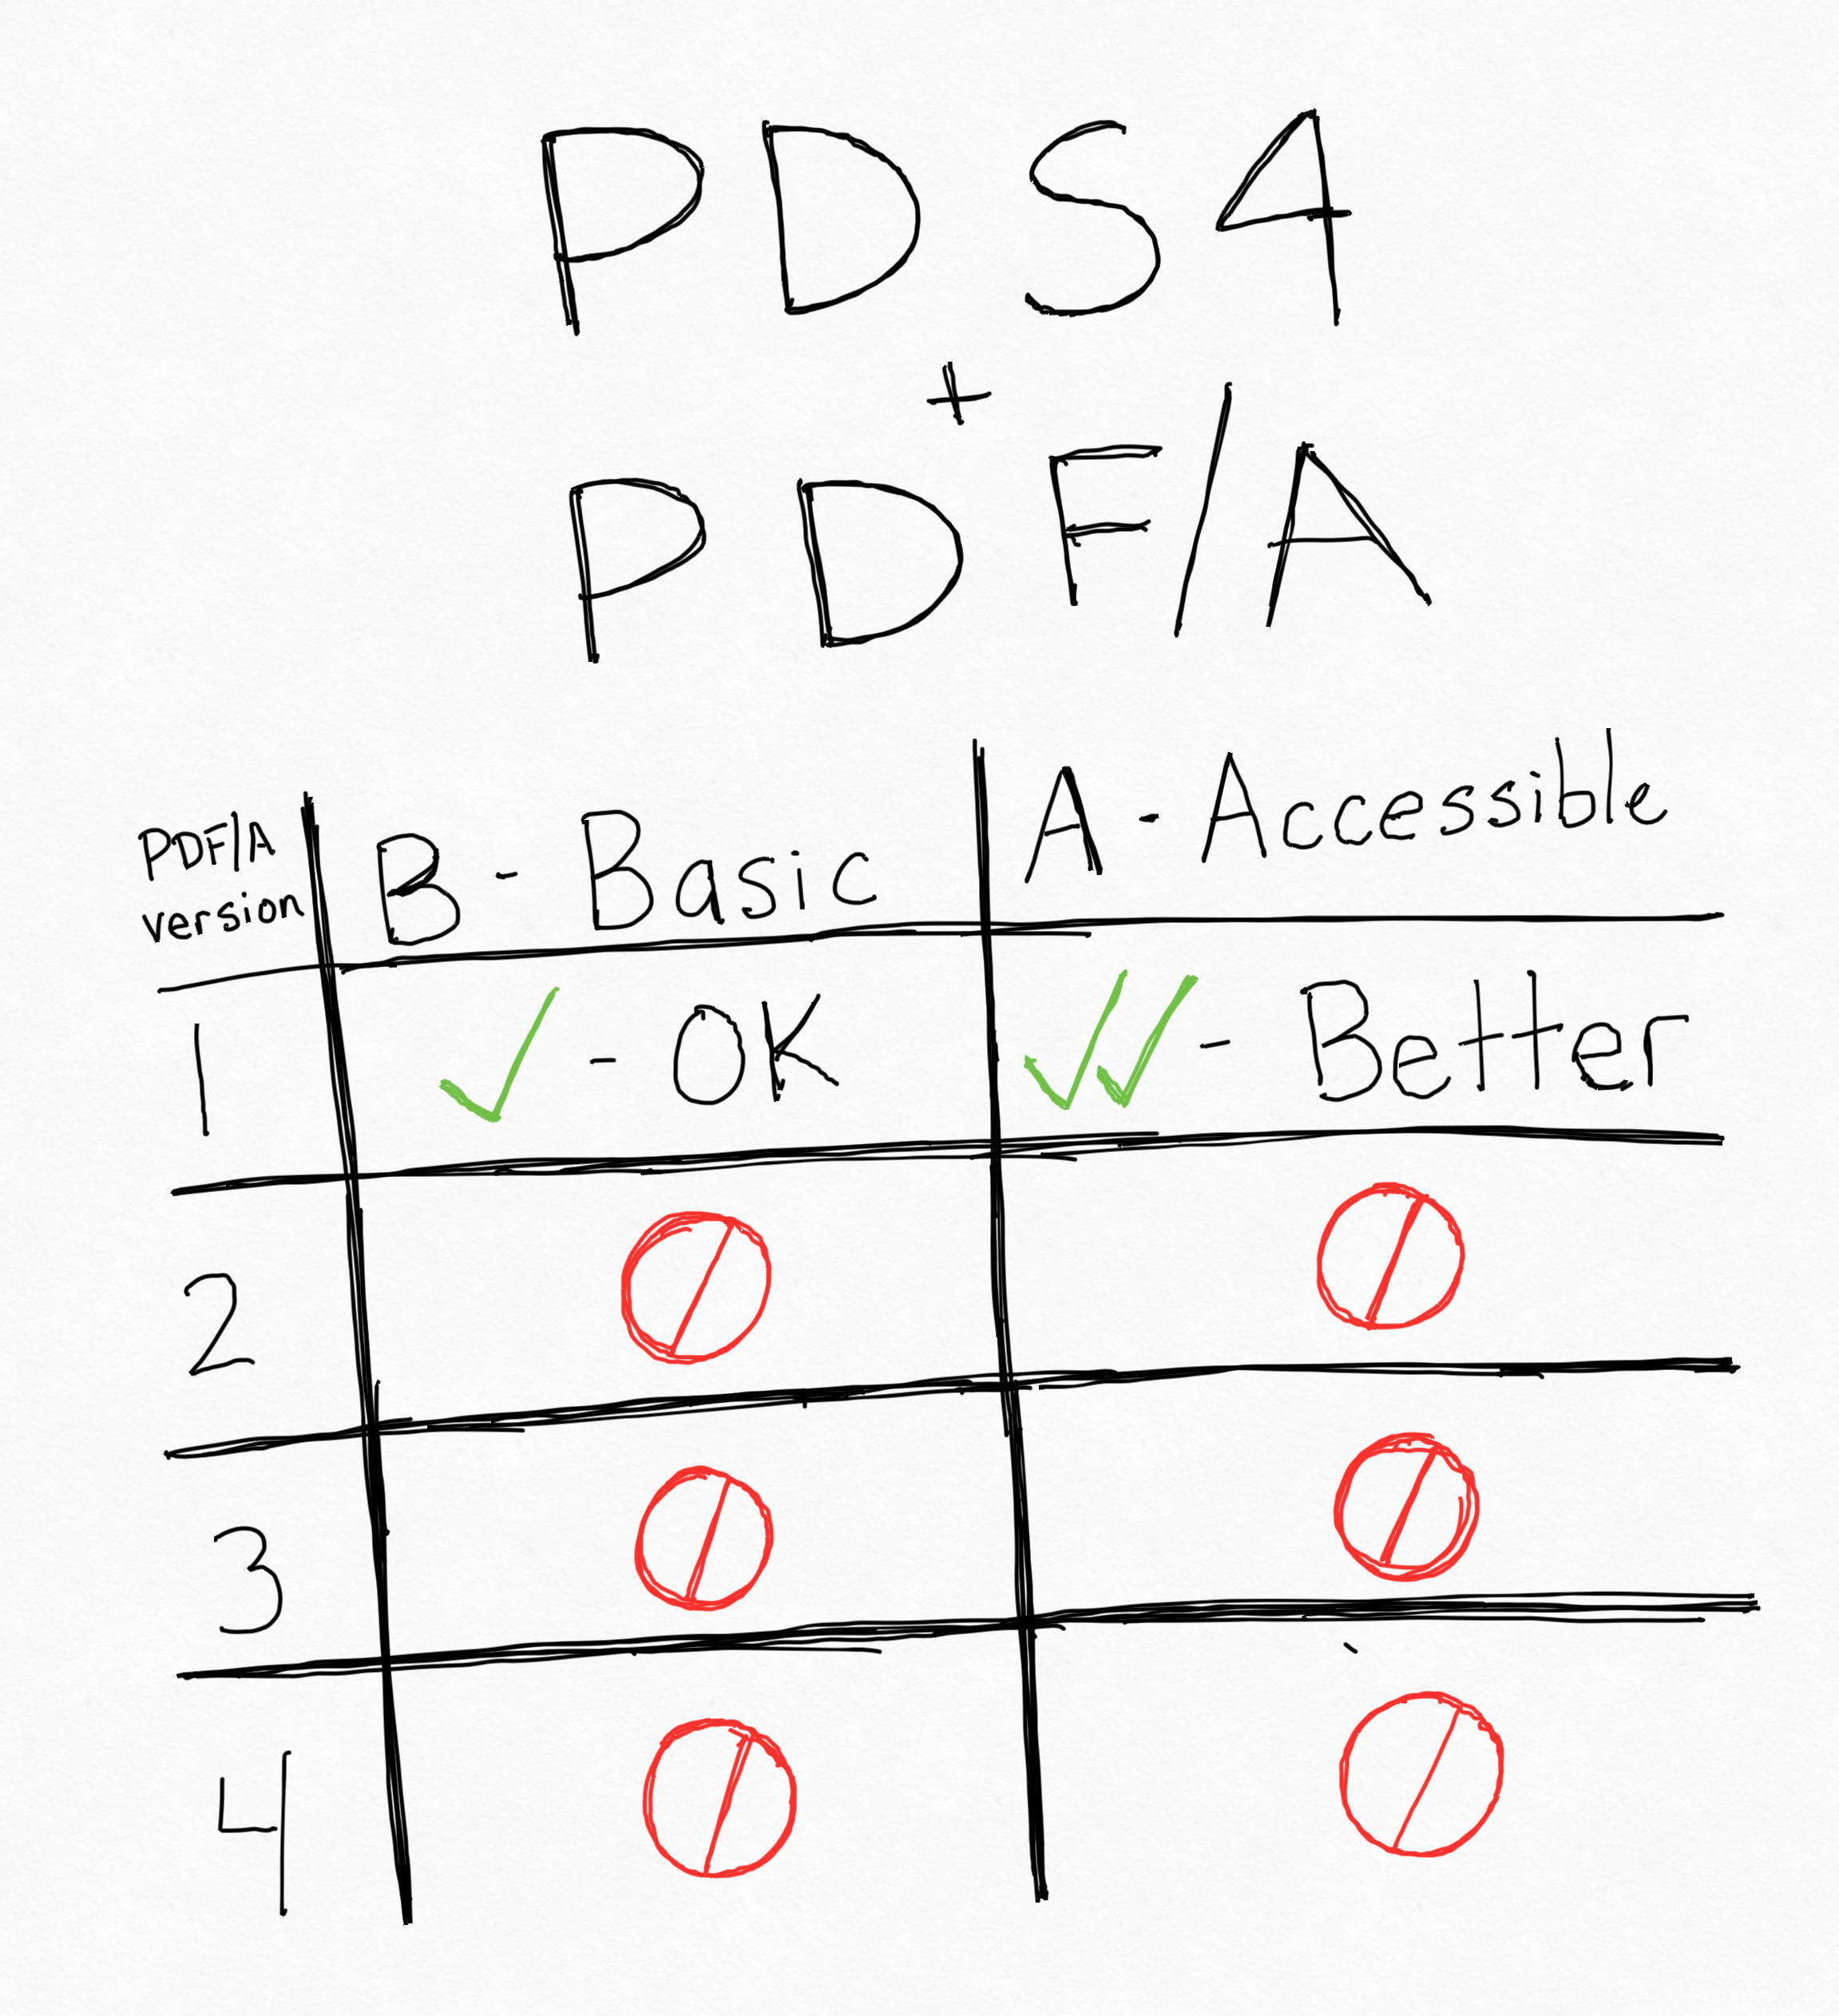 PDS4
+
PDF/A
PDF/A version B - Basic A - Accessible
1 ✓ - OK ✓✓ - Better
2
3
4